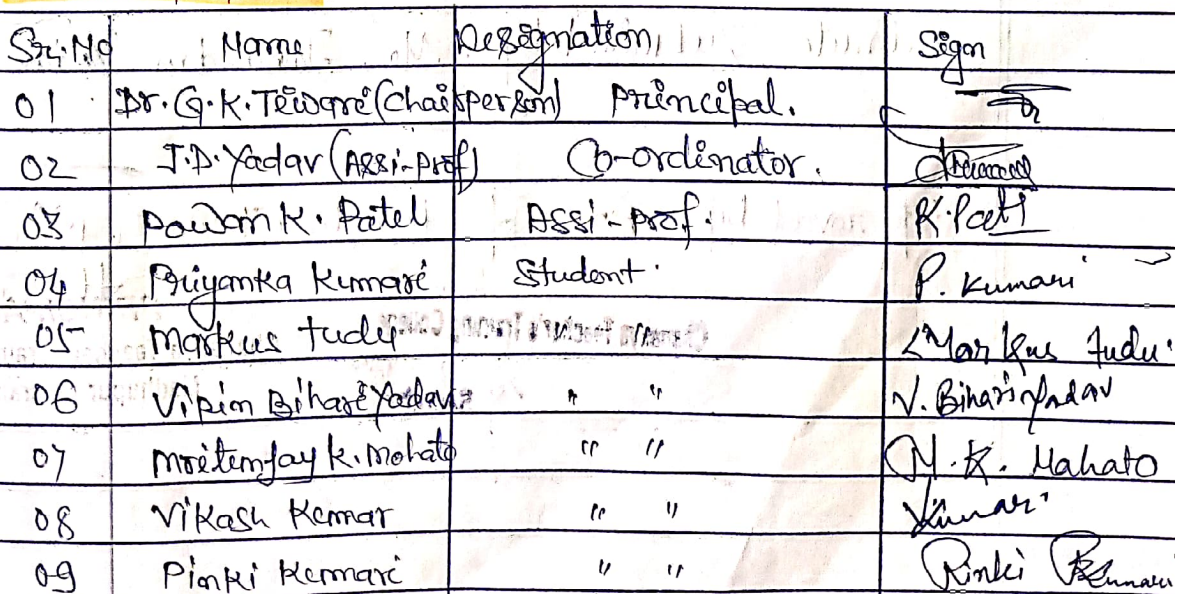 Sr. No Name Designation Sign
01 Dr. G. K. Tiwari (Chairperson) Principal.
02 J.D. Yadav (Assi-Prof) Co-ordinator.
03 Pawan K. Patel Assi-Prof. K. Patl
04 Priyanka Kumari Student. P. Kumari
05 Markus Tudu Markus Tudu.
06 Vipin Bihari Yadav " " V. Bihari Yadav
07 Mritunjay K. Mohato " " M. K. Mahato
08 Vikash Kumar " " Kumar
09 Pinki Kumari " " Pinki Kumari